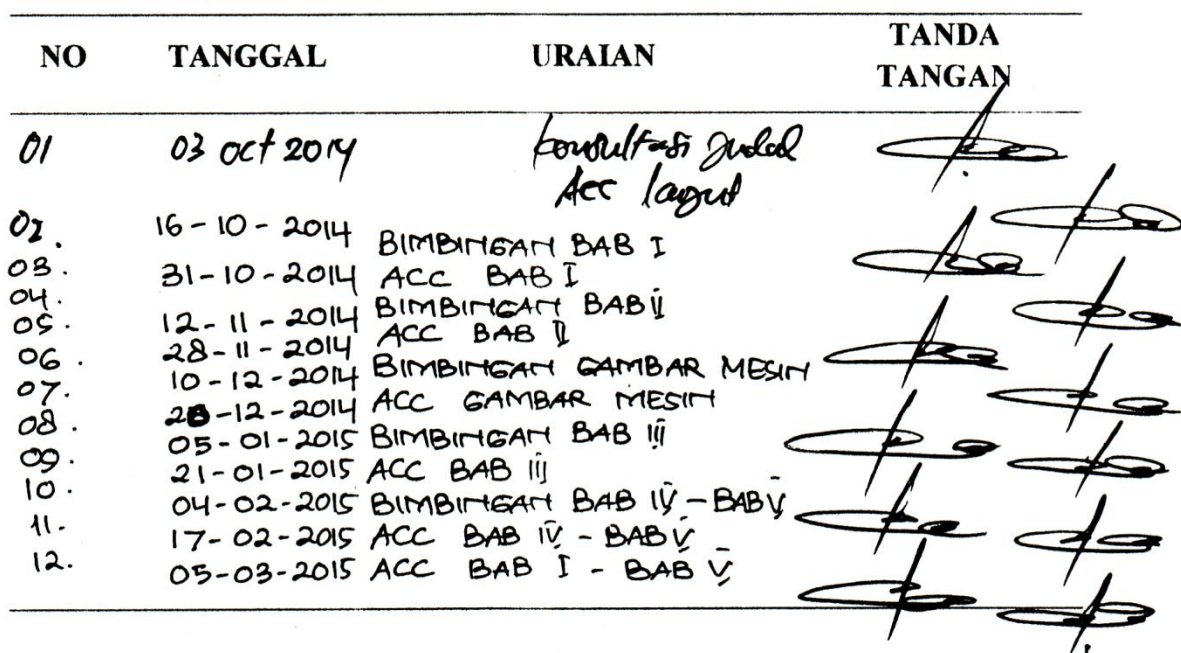 NO TANGGAL URAIAN TANDA TANGAN
01 03 oct 2014 konsultasi judul
Acc lanjut
02. 16-10-2014 BIMBINGAN BAB I
03. 31-10-2014 ACC BAB I
04. 12-11-2014 BIMBINGAN BAB II
05. 28-11-2014 ACC BAB II
06. 10-12-2014 BIMBINGAN GAMBAR MESIN
07. 28-12-2014 ACC GAMBAR MESIN
08. 05-01-2015 BIMBINGAN BAB III
09. 21-01-2015 ACC BAB III
10. 04-02-2015 BIMBINGAN BAB IV - BAB V
11. 17-02-2015 ACC BAB IV - BAB V
12. 05-03-2015 ACC BAB I - BAB V